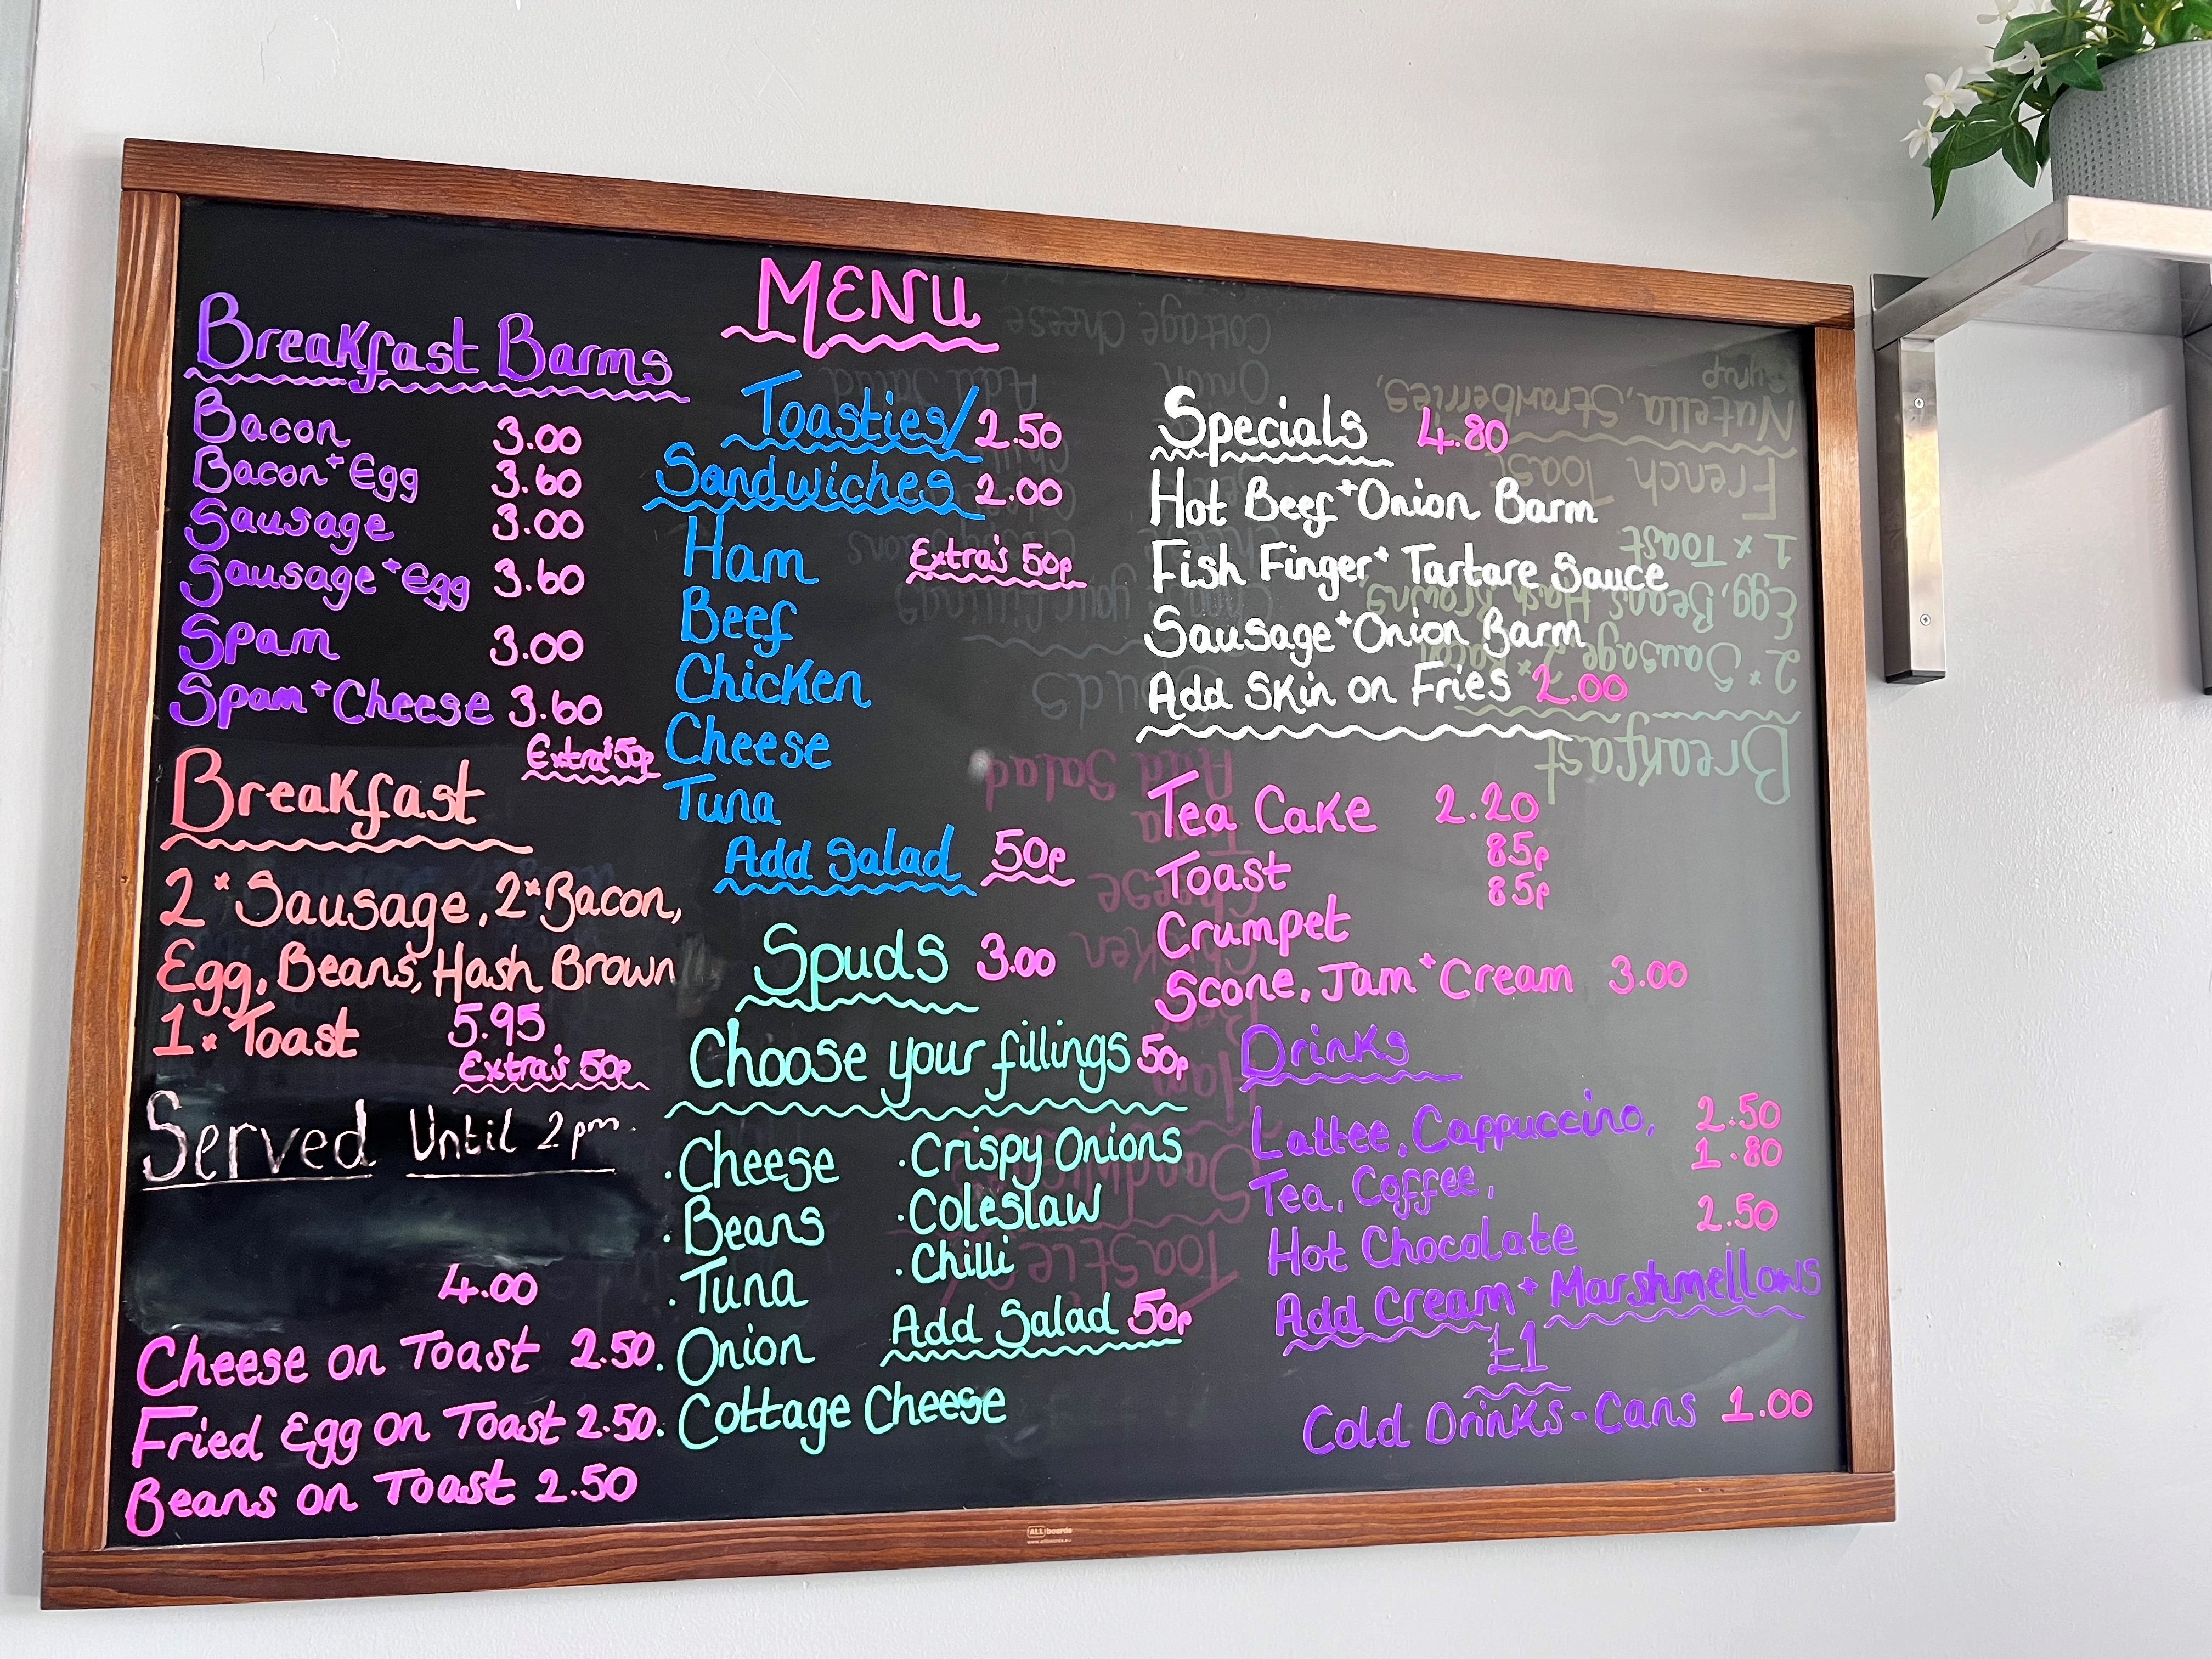 MENU
Breakfast Barms
Bacon 3.00
Bacon + Egg 3.60
Sausage 3.00
Sausage + Egg 3.60
Spam 3.00
Spam + Cheese 3.60
Extra's 50p
Breakfast
2 x Sausage, 2 x Bacon,
Egg, Beans, Hash Brown
1 x Toast 5.95
Extra's 50p
Served Until 2pm.
4.00
Cheese on Toast 2.50
Fried Egg on Toast 2.50
Beans on Toast 2.50
Toasties/ 2.50
Sandwiches 2.00
Ham
Extra's 50p
Beef
Chicken
Cheese
Tuna
Add Salad 50p
Spuds 3.00
Choose your fillings 50p
· Cheese
· Beans
· Tuna
· Onion
· Cottage Cheese
· Crispy Onions
· Coleslaw
· Chilli
Add Salad 50p
Specials 4.80
Hot Beef + Onion Barm
Fish Finger + Tartare Sauce
Sausage + Onion Barm
Add Skin on Fries 2.00
Tea Cake 2.20
Toast 85p
Crumpet 85p
Scone, Jam + Cream 3.00
Drinks
Lattee, Cappuccino, 2.50
Tea, Coffee, 1.80
Hot Chocolate 2.50
Add Cream + Marshmellows
£1
Cold Drinks - Cans 1.00
Breakfast
2 x Sausage 2 x Bacon
Egg, Beans, Hash Browns,
1 x Toast
French Toast
Nutella, Strawberries,
Syrup
Toasties
Sandwiches
Ham
Beef
Chicken
Cheese
Tuna
Add Salad
Spuds
Choose your fillings
Onion
Add Salad
Cottage Cheese
ALLboards
www.allboards.eu